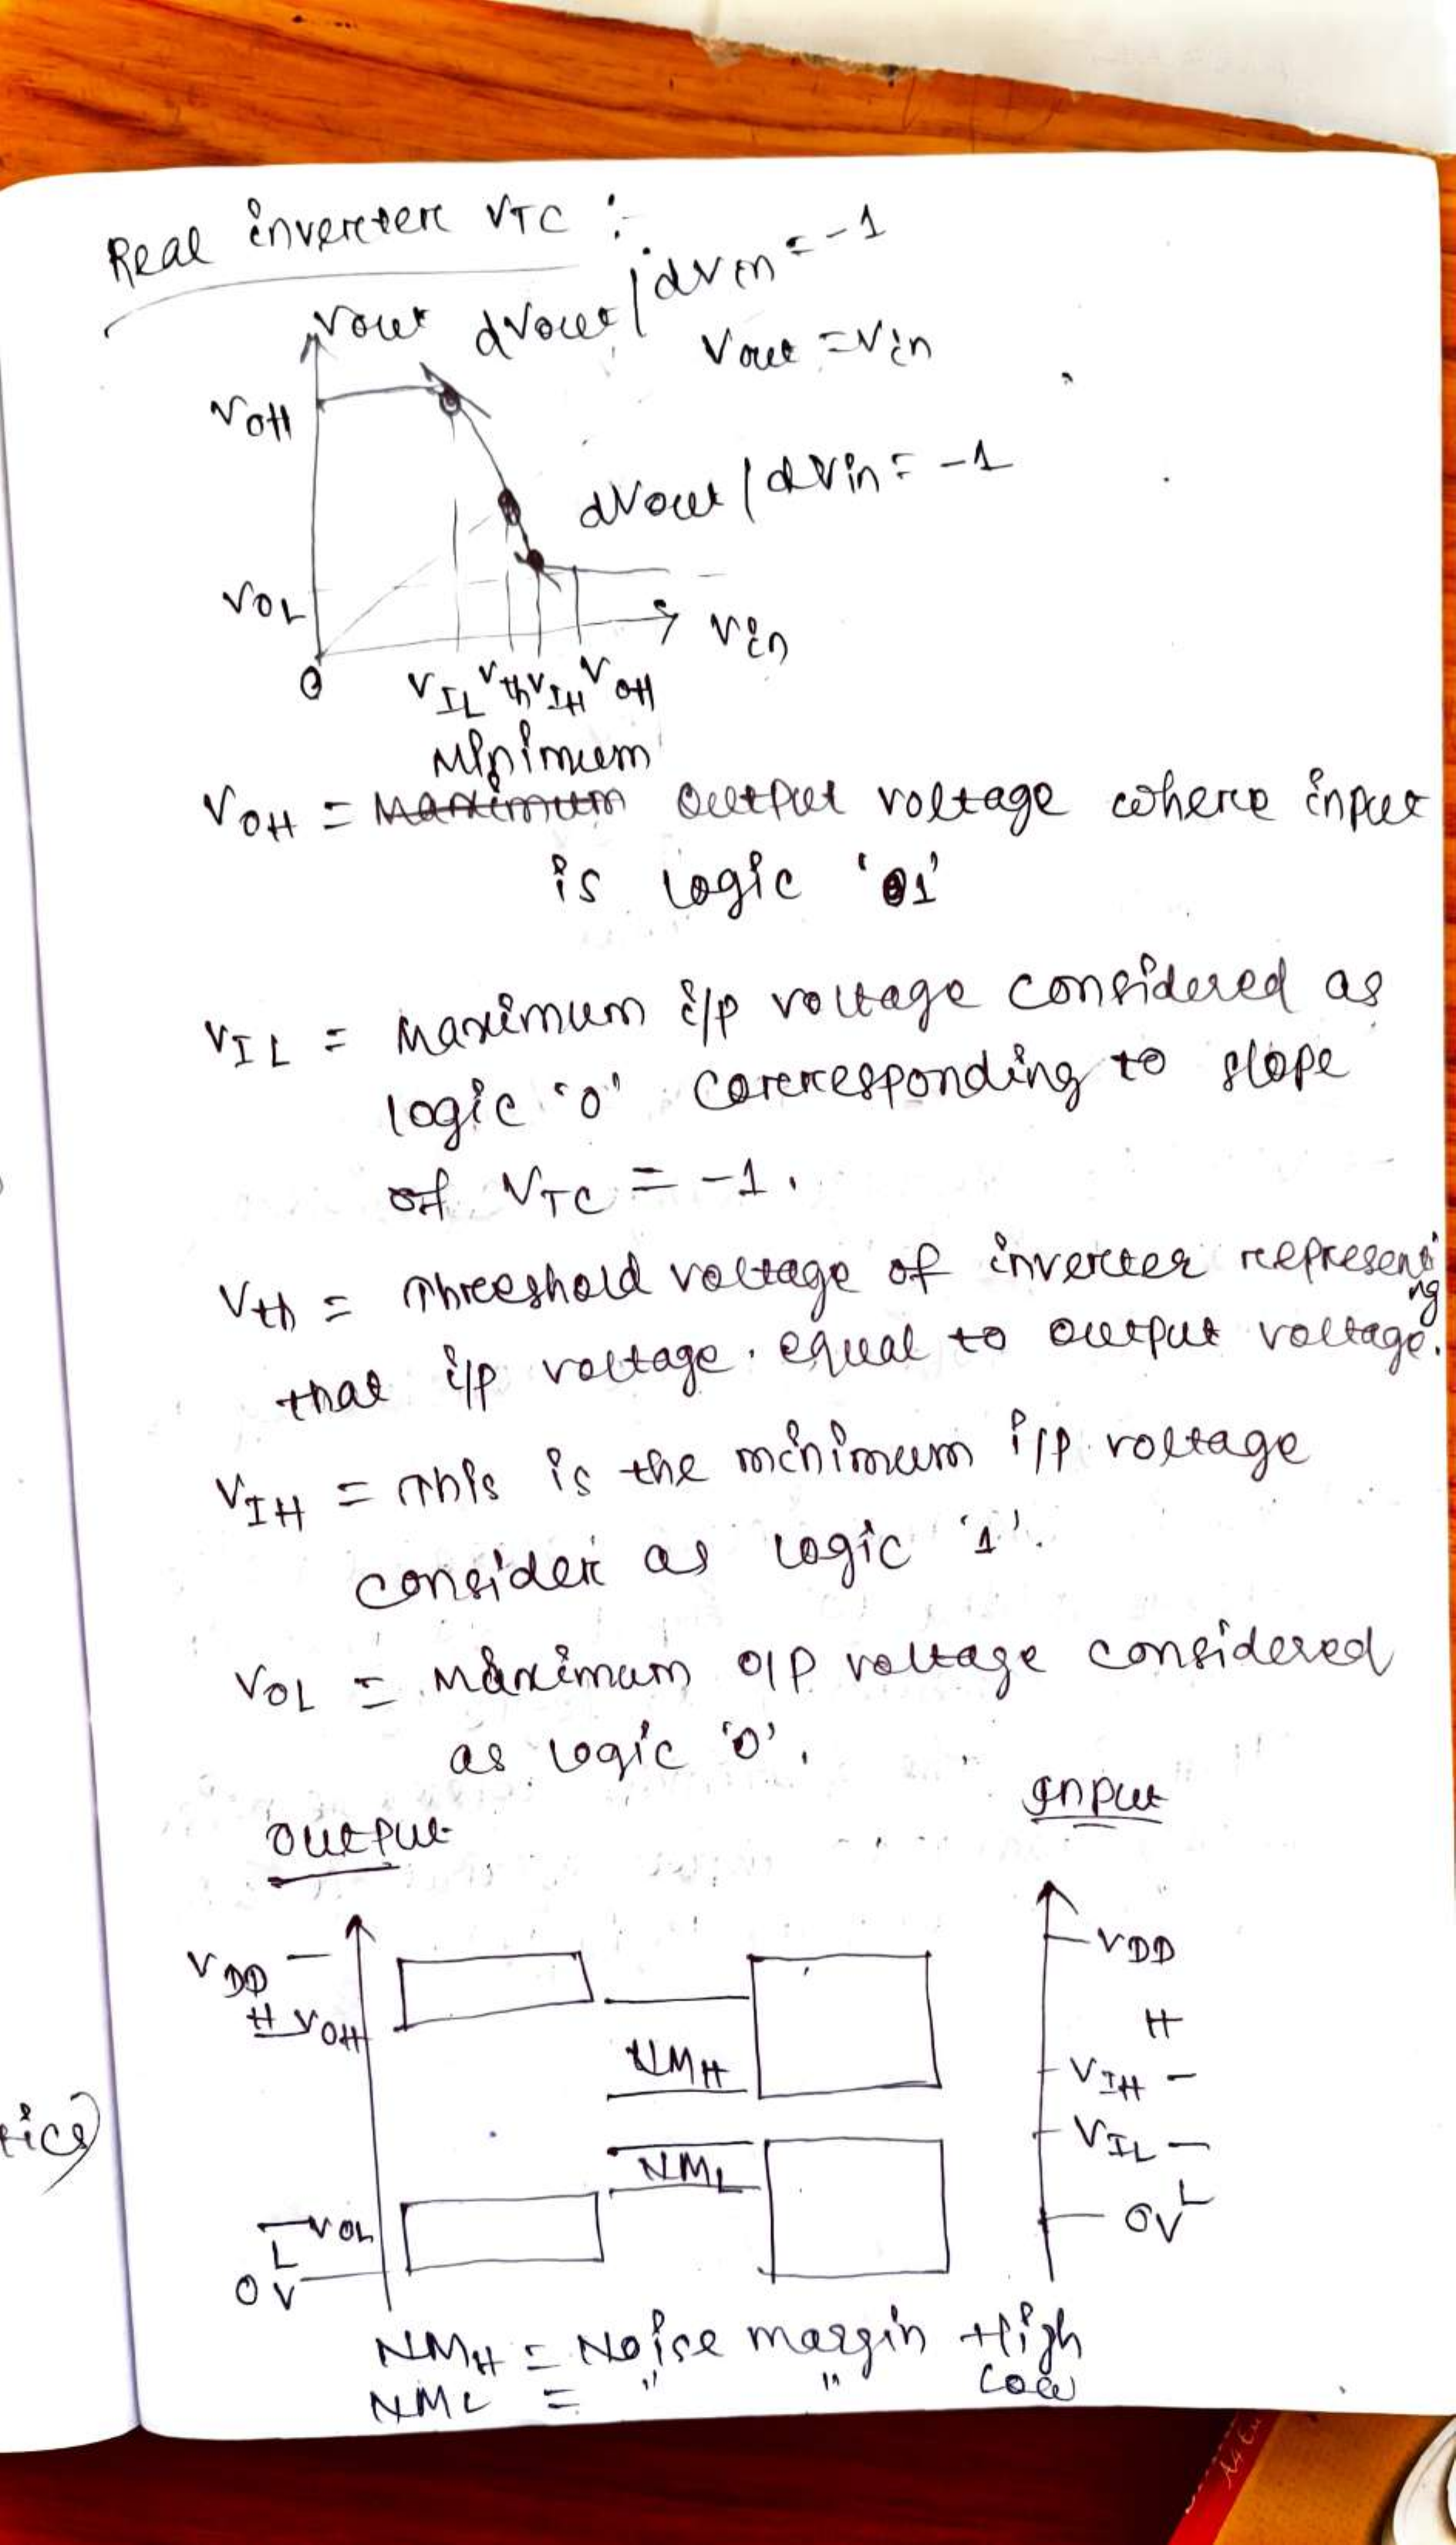 Real inverter VTC :-
dVout/dVin = -1
Vout
Vout = Vin
VOH
dVout/dVin = -1
VOL
Vin
0
VIL Vth VIH VOH
Minimum
VOH = Maximum output voltage where input
is logic '1'
VIL = Maximum i/p voltage considered as
logic '0' corresponding to slope
of VTC = -1.
Vth = Threshold voltage of inverter representing
that i/p voltage equal to output voltage.
VIH = This is the minimum i/p voltage
consider as logic '1'.
VOL = Maximum o/p voltage considered
as logic '0'.
Output
Input
VDD
VDD
H VOH
H
NMH
VIH
VIL
NML
VOL
L
L
0V
0V
tics)
NMH = Noise margin High
NML = " " Low